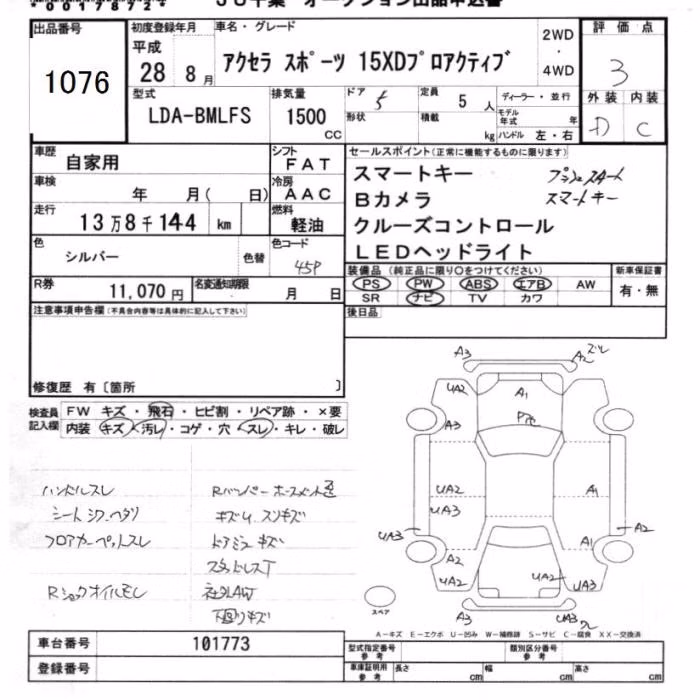 00178724
JU千葉 オークション出品申込書
出品番号 1076
初度登録年月 平成 28 8月
車名・グレード アクセラ スポーツ 15XDプロアクティブ
2WD・4WD
評価点 3
外装 内装 D C
型式 LDA-BMLFS
排気量 1500 CC
ドア 5
形状
定員 5人
積載 kg
ディーラー・並行
モデル年式 年
ハンドル 左・右
車歴 自家用
シフト FAT
車検 年 月( 日)
冷房 AAC
走行 13万8千144 km
燃料 軽油
色 シルバー 色替
色コード 45P
R券 11,070円
名変通知期限 月 日
セールスポイント(正常に機能するものに限ります)
スマートキー プッシュスタート
Bカメラ スマートキー
クルーズコントロール
LEDヘッドライト
装備品(純正品に限り○をつけてください) 新車保証書
PS PW ABS エアB AW 有・無
SR ナビ TV カワ
後日品
注意事項申告欄(不具合内容等は具体的に記入して下さい)
修復歴 有〔箇所 〕
検査員記入欄
FW キズ・飛石・ヒビ割・リペア跡・×要
内装・キズ・汚レ・コゲ・穴・スレ・キレ・破レ
ハンドルスレ
シートシワ・ヘタリ
フロアカーペットスレ
Rショックオイルモレ
Rバンパー
キズU スリキズ
ドアミラーキズ
スタッドレスT
社外AW
下回りキズ
A3 A2
UA2 A1
A3
UA2 A1
UA3
UA3 A2
A1
A2
UA2 UA2 UA3
スペア
A3 UA3
A-キズ E-エクボ U-凹み W-補修跡 S-サビ C-腐食 XX-交換済
車台番号 101773
登録番号
型式指定番号 参考
類別区分番号 参考
車庫証明用 参考 長さ cm 幅 cm 高さ cm